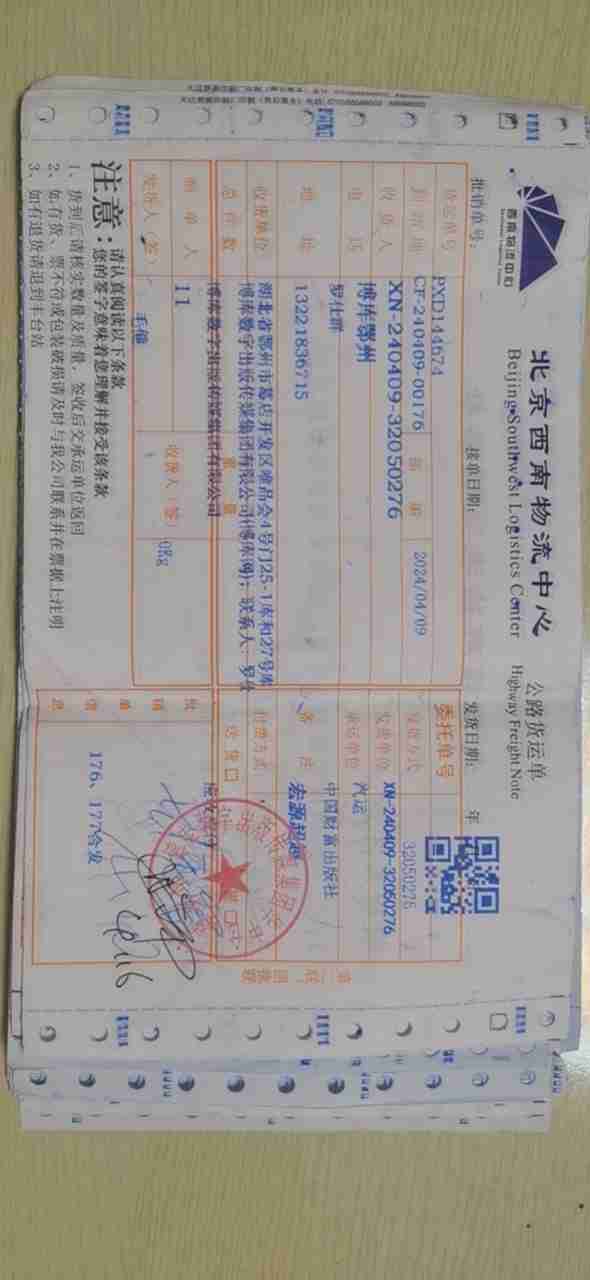 西南物流中心
北京西南物流中心
Beijing Southwest Logistics Center
公路货运单
Highway Freight Note
批销单号:
接单日期:
发货日期: 年
货运单号
PXD144674
委托单号
32050276
到站地
CF-240409-00176
2024/04/09
发货方式
XN-240409-32050276
收货人
XN-240409-32050276
发货单位
汽运
电话
博库鄂州
承运单位
罗仕群
中国财富出版社
地址
13221836715
备注
宏源超越
收货单位
湖北省鄂州市葛店开发区唯品会4号门25-1库和27号库
付费方式
总件数
博库数字出版传媒集团有限公司(博库网); 联系人:罗仕
重量
送货口
制单人
11
博库数字出版传媒集团有限公司
批销单信息
发货人(签)
毛倩
收货人(签)
0kg
176、177合发
注意:
请认真阅读以下条款
您的签字意味着您理解并接受该条款
1、货到后请核实数量及质量,签收后交承运单位返回
2、如有货、票不符或包装破损请及时与我公司联系并在票据上注明
3、如有退货请退到丰台站